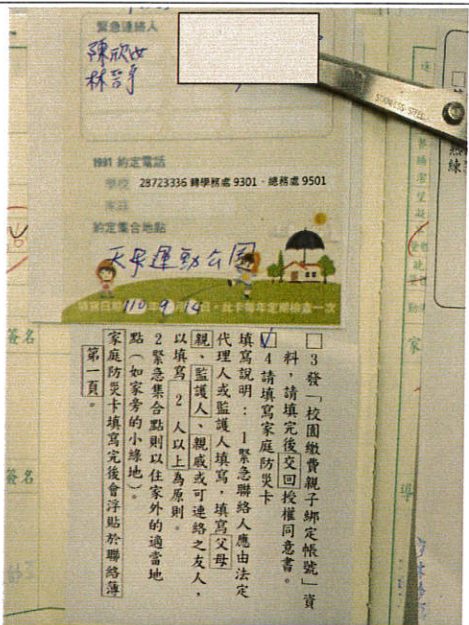 緊急連絡人
陳欣女
林晉宇
1991 約定電話
學校 28723336 轉學務處 9301、總務處 9501
家庭
約定集合地點
天母運動公園
110 9 14
此卡每年定期檢查一次
□3發「校園繳費親子綁定帳號」資
料,請填完後交回授權同意書。
☑4請填寫家庭防災卡
填寫說明:1緊急聯絡人應由法定
代理人或監護人填寫,填寫父母
親、監護人、親戚或可連絡之友人,
以填寫2人以上為原則。
2緊急集合點則以住家外的適當地
點(如家旁的小綠地)。
家庭防災卡填寫完後會浮貼於聯絡簿
第一頁。
STAINLESS STEEL
簽名
簽名
練
家
導